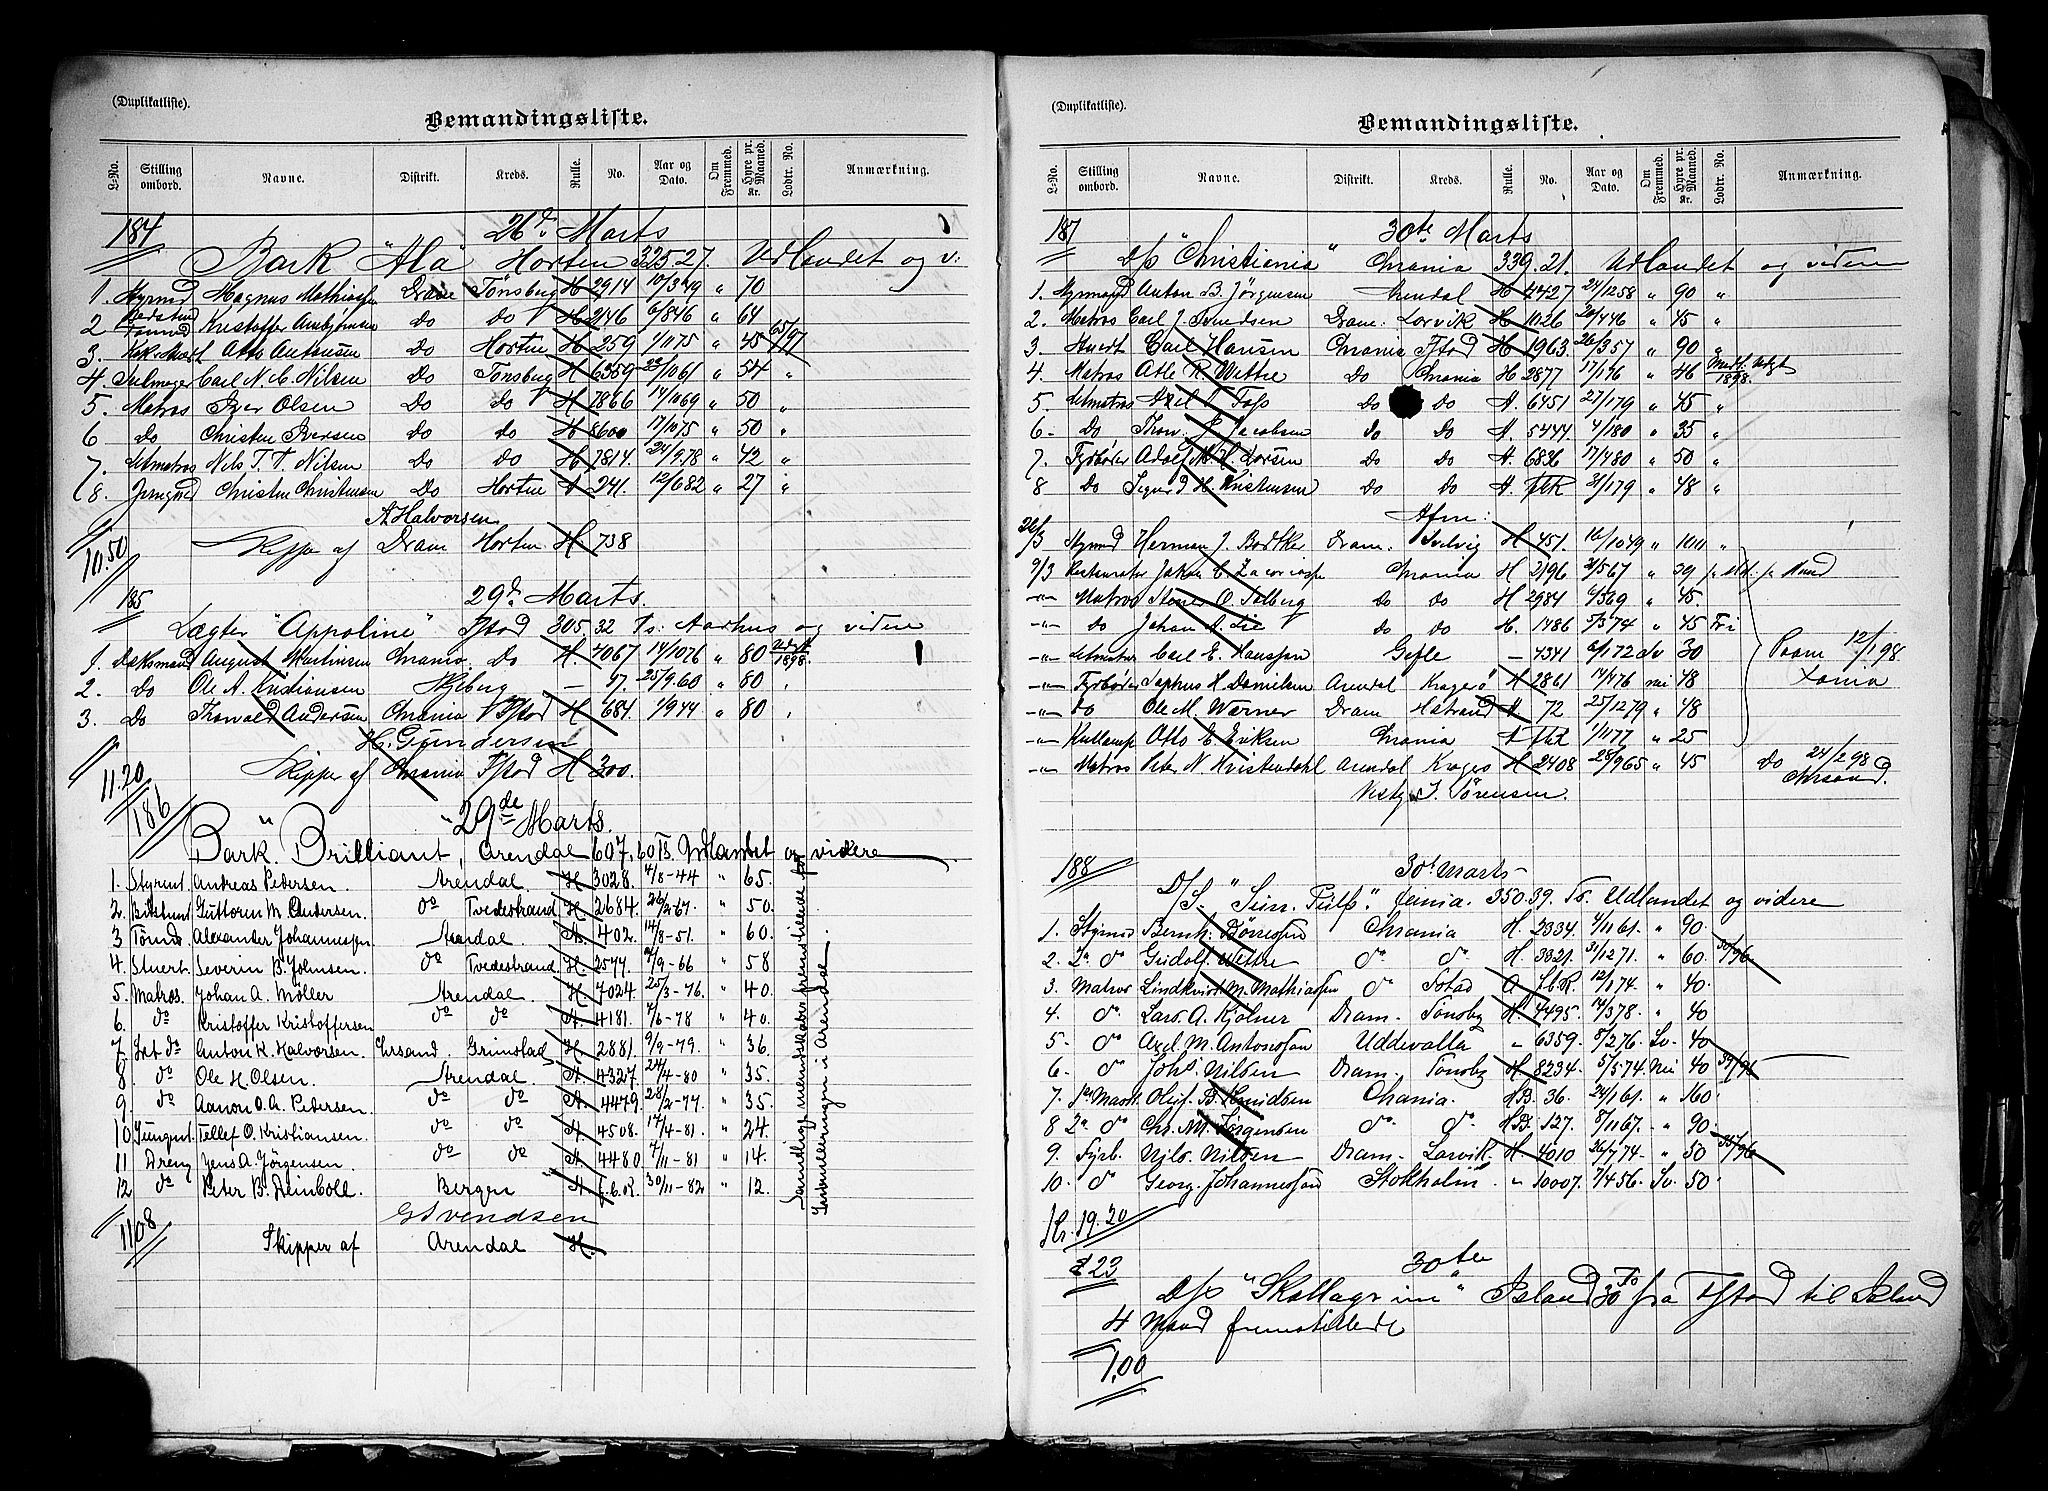 (Duplikatliste).
Bemandingsliste.
L-No. Stilling ombord. Navne. Distrikt. Kreds. Rulle. No. Aar og Dato. Om Fremmed. Hyre pr. Maaned. Kr. Lodtr. No. Anmærkning.
184 26d Marts
Bark "Ala" Horten 325.27. Udlandet og v:
1. Styrmd Magnus Mathiassen Dram Tönsberg H 2914 10/3 49 " 70
2 Kristoffer Do Do H 2146 6/8 46 " 64
3. Otto Antonsen Do Horten H 259 1/11 75 " 45 65/97
4. Seilmager Carl N. C. Nilsen Do Tönsberg H 6359 23/10 61 " 54 "
5. Matros Iver Olsen Do Do H 7866 14/10 69 " 50 "
6 do Christen Iversen Do do H 8600 17/10 75 " 50 "
7. Letmatros Nels T. T. Nilsen Do Do H 7814. 24/9 78 " 42 "
8. Jungmd Christen Christensen Do Horten A 241. 12/6 82 " 27 "
A Halvorsen
Skipper af Dram Horten H 738
10.50
185 29d Marts.
Lægter "Appoline" Fstad 305.32 Ts: Aarhus og videre
1. Dæksmand August Martinsen Chrania Do H. 4067 14/10 76 " 80 Udgt 1898.
2. Do Ole A. Kristiansen — 97. 25/9 60 " 80 "
3. Do Thorvald Andersen Chrania Fstad H 684. 1/9 44 " 80 "
H. Gundersen
Skipper af Chrania Fstad H 300.
11.20
186 29de Marts.
Bark "Brilliant", Arendal 607,60 Ts. Udlandet og videre
1. Styrmt Andreas Pedersen. Arendal. H. 3028. 4/8-44 " 65.
2. Guttorm M. Andersen. do Tvedestrand H. 2684. 26/2-67. " 50.
3 Tömmd Alexander Johannessen Arendal. A. 402. 14/8-51. " 60.
4. Stuert. Severin B. Johnsen. do Tvedestrand H. 2577. /9-66 " 58
5. Matros. Johan A. Möller Arendal. H. 7024. 25/3-76. " 40.
6. do Kristoffer Kristoffersen do do A. 4181. 7/6-78 " 40.
7. Let do Anton K. Halvorsen. Chrsand. Grimstad H 2881. 9/9-79. " 36.
8. do Ole H. Olsen. Arendal. A. 4327. 24/4-80 " 35.
9. do Aanon O. A. Pedersen. do do A. 4479. 28/2-77. " 35.
10 Jungmt. Tellef O. Kristiansen. do do A. 4508. 17/4-81. " 24.
11 Dreng Jens A. Jörgensen. do do A. 4480. 7/11-81 " 14.
12 do Peter B. Deinboll. Bergen A. f.t.R. 30/11-82 " 12.
Samtlige mandskaber fremstillede for Indrulleringen i Arendal.
G Svendsen
Skipper af Arendal H.
1108
(Duplikatliste).
Bemandingsliste.
L-No. Stilling ombord. Navne. Distrikt. Kreds. Rulle. No. Aar og Dato. Om Fremmed. Hyre pr. Maaned. Kr. Lodtr. No. Anmærkning.
187 30te Marts
D/S "Christiania" Chrania 339.21. Udlandet og videre
1. Styrmand Anton B. Jörgensen Arendal H 4427 24/12 58 " 90 "
2. Matros Carl J. Svendsen Dram: Larvik H 1126 20/4 46 " 45 "
3. Stuert Carl Hansen Chrania Fstad H 1963. 26/3 57 " 90 "
4. Matros Atle R. Wettre Do Chrania H 2877 17/1 76 " 46 Udgt 1898.
5. Letmatros Axel T. Foss Do Do A. 6451 27/1 79 " 45 "
6. Do Thorv. J. Jacobsen do Do A. 5444. 4/1 80 " 35 "
7. Fyrböder Adolf M. H. Larsen Do Do A. 6836 17/4 80 " 50 "
8 Do Sigurd H. Kristensen Do Do A. ftR 21/1 79 " 48 "
Afm:
26/3 Styrmd Herman J. Bödtker Dram. Svelvig H 451. 16/10 49 " 100 "
9/3 Restauratör Jakob C. Zacariassen Chrania H 2196 21/5 67 " 29
-"- Matros O. Solberg do do H 2984 6/3 69 " 45.
-"- do Johan A. Lie do do H. 1486 5/3 74 " 45 Fri
-"- Letmatros Carl E. Hansson Gefle — 4341 6/1 72 Sv 30
-"- Fyrböder Sophus H. Danielsen Arendal Kragerö H 2861 14/4 76 nei 48
-"- do Ole M. Werner Dram Hstrand A 72 25/12 79 " 48
-"- Kullemp. Otto E. Eriksen Chrania A ftR 1/11 77 " 25
Paam 12/1 98 Xania
-"- Matros Peter N. Hvistendahl Arendal Kragerö H 2408 28/9 65 " 45 Do 24/2 98 Chrsand.
J. Sörensen.
188 30t Marts
D/S. "Sein. Ts. Udlandet og videre
1. Styrmd Bernh. Börresen Chrania H. 2334 4/11 61. " 90.
2. 2n do Gudolf Wettre do do H. 3321. 31/12 71. " 60. 30/96
3. Matros Lindkvist M. Mathiassen do Fstad A ft.R. 12/1 74. " 40.
4. do Lars A. Kjölner Dram. Tönsbg H. 4495. 14/3 78. " 40
5. do Axel M. Antonsson Uddevalla " 6359. 8/2 76. Sv. 40
6. do Johs. Nilsen Dram. Tönsbg H 8234. 5/5 74 nei 40 39/96
7. 1st Mask. Oluf. B. Knudsen Chrania. HB. 36. 24/1 61. " 160.
8 2n do Chr. M. Jörgensen do do HB. 127. 8/11 67. " 90.
9. Fyrb. Nils. Nilsen Dram. Larvik. H 4010 26/7 74. " 50 35/96
10. do Georg. Johannesson Stokholm " 10007. 7/4 56. Sv. 50.
Kr. 19.20
£ 23 30te
D/S "Skallagrim" Island 30 Ts fra Fstad til Island
4 Mand fremstillede
1,00